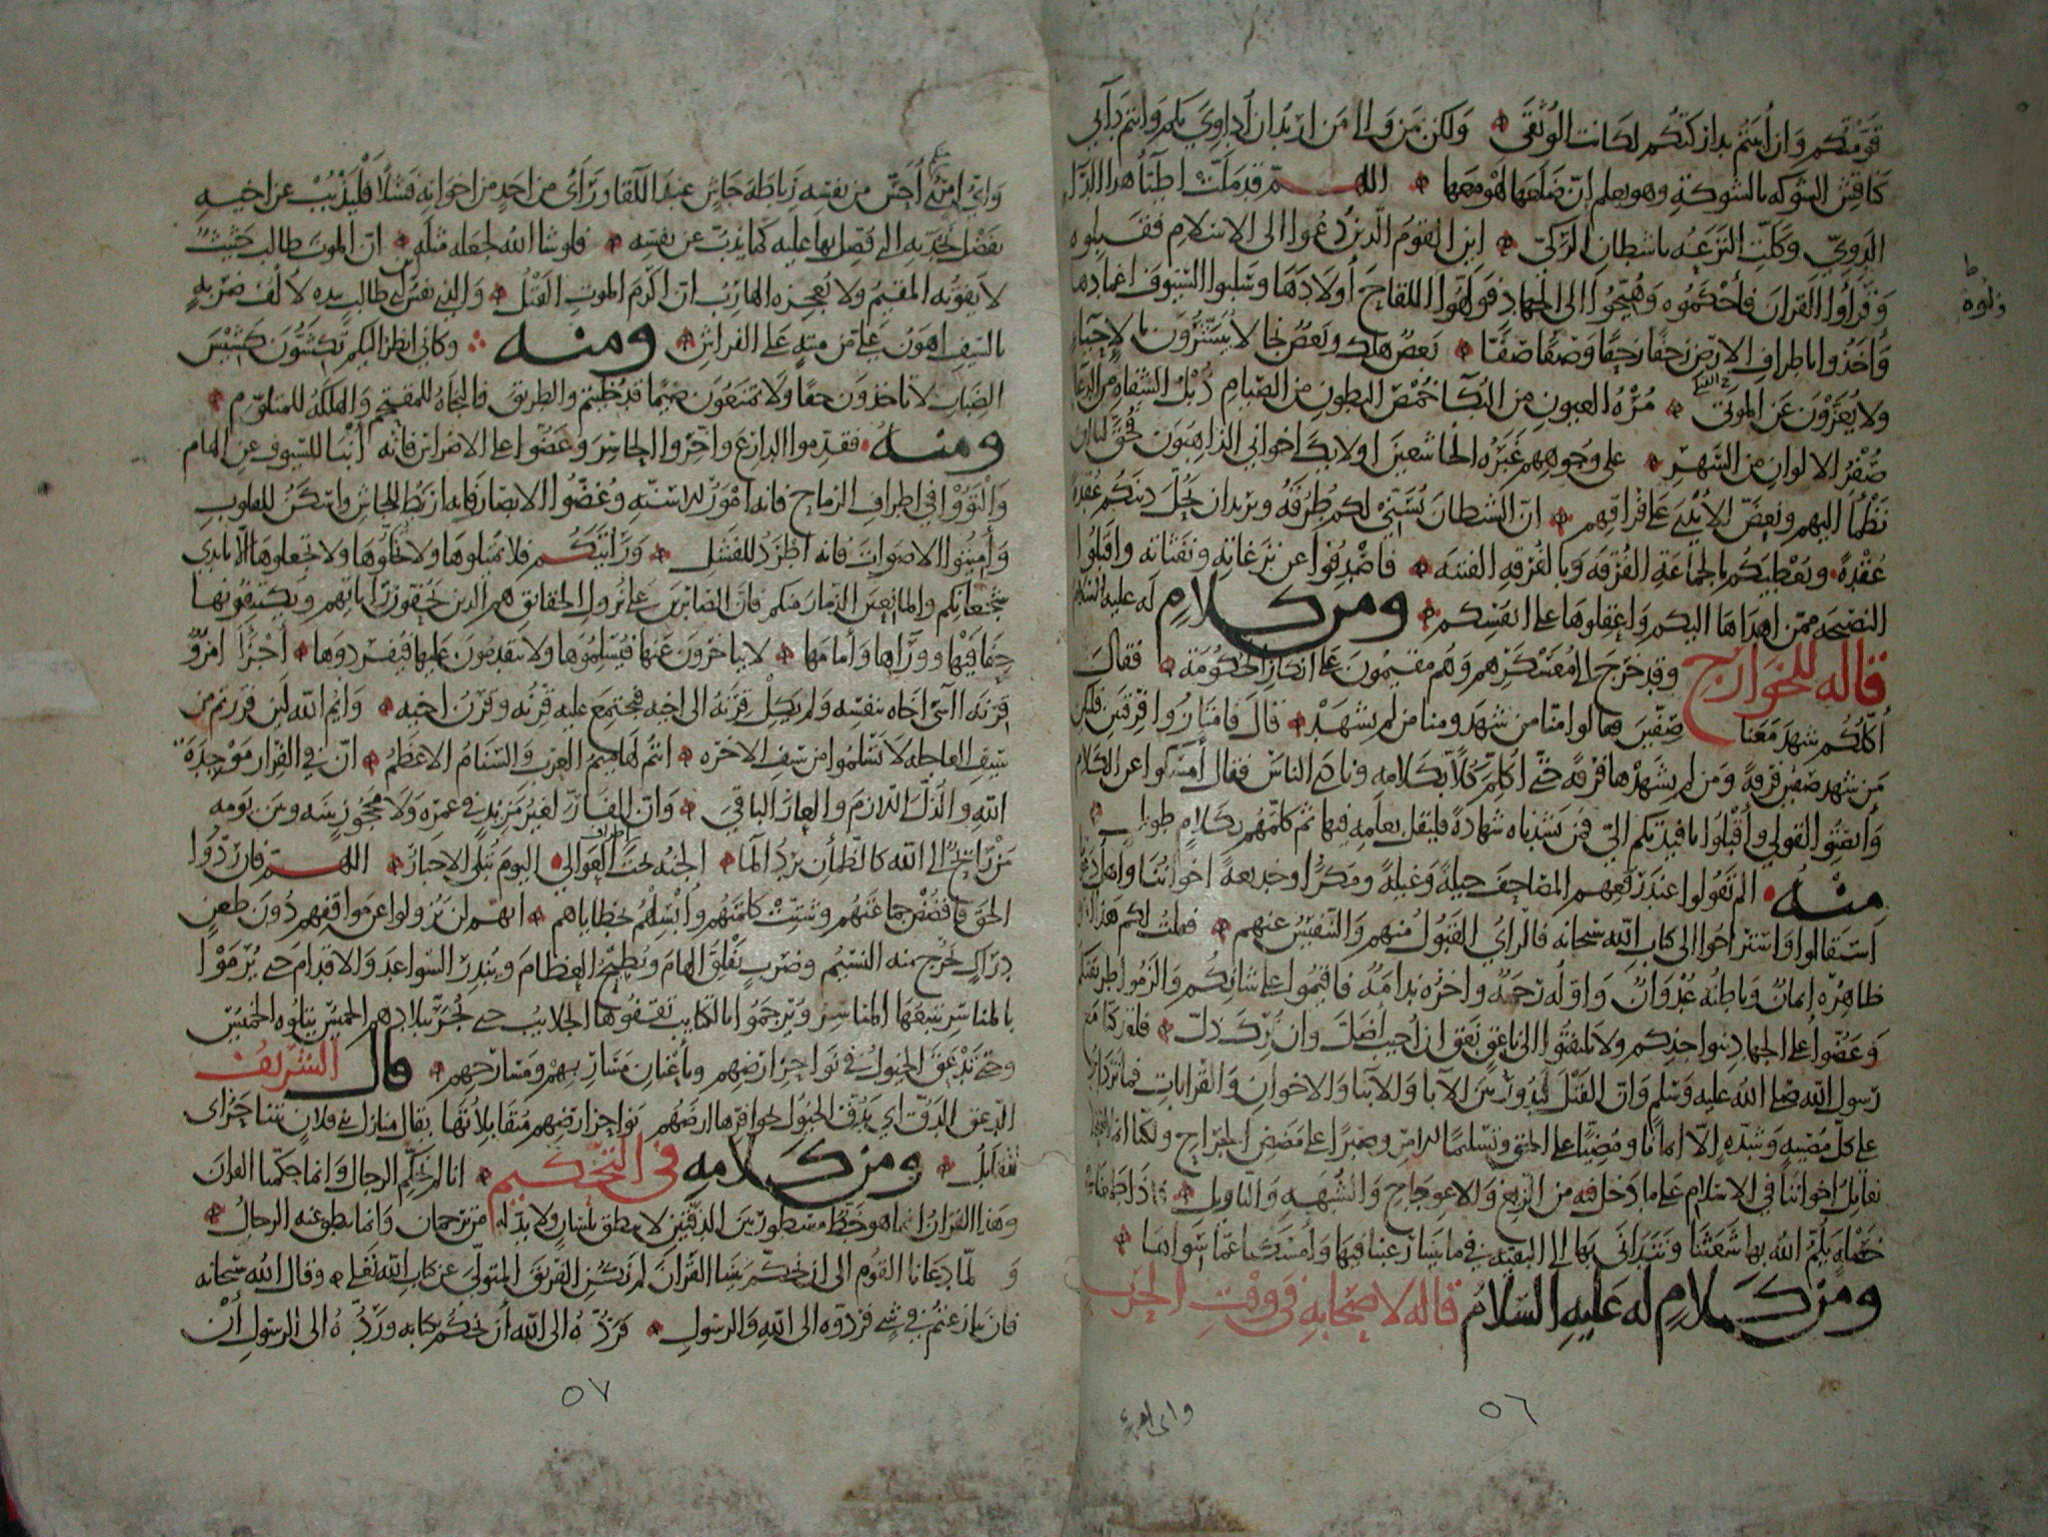 قومتكم وان أبيتم تداركتكم لكانت الوثقى ولكن بمن والى من اريد ان أداوي بكم وانتم دآئي
كناقش الشوكه بالشوكة وهو يعلم انّ ضلعها معها اللهم قد ملّت اطبّآء هذا الدآء
الدويّ وكلّت النزعه باشطان الركيّ اين القوم الذين دُعوا الى الاسلام فقبلوه
وقرأوا القران فأحكموه وهيّجوا الى الجهاد فولّهوا اللقاح أولادها وسلبوا السيوف اغمادها
وأخذوا باطراف الارض زحفًا زحفًا وصفًا صفًّا بعض هلك وبعض نجا لا يبشّرون بالاحيآء
ولا يُعزّون عن الموتى مُرْه العيون من البكآء خمص البطون من الصيام ذبل الشفاه من الدعآء
صُفْر الالوان من السّهر على وجوههم غبرة الخاشعين اولائك اخواني الذاهبون فحقّ لنا ان
نظمأ اليهم ونعضّ الأيدي على فراقهم انّ الشيطان يُسنّي لكم طُرُقه ويريد ان يحُلّ دينكم عُقدة
عُقْدةً ويُعطيكم بالجماعة الفُرقه وبالفُرقه الفتنه فاصْدِفوا عن نزغاته ونفثاته واقبلوا
النصيحه ممّن اهداها اليكم واعقلوها على انفسكم ومن كلام له عليه السلام
قاله للخوارج وقد خرج الى معسكرهم وهم مقيمون على انكار الحكومة فقال
أكلّكم شهد معنا صفّين فقالوا منّا من شهد ومنا من لم يشهد قال فامتازوا فرقتين فليكن
من شهد صفين فرقةً ومن لم يشهدها فرقةً حتى أكلّم كلًّا بكلامه ونادى الناس فقال أمسكوا عن الكلام
وأنصتوا لقولي وأقبلوا بافيدتكم اليّ فمن نشدناه شهادةً فليقل بعلمه فيها ثم كلمهم بكلام طويل
منه الم تقولوا عند رفعهم المصاحف حيلةً وغيلةً ومكرًا وخديعةً اخواننا واهل دعوتنا
استقالوا واستراحوا الى كتاب الله سبحانه فالرأي القبول منهم والتنفيس عنهم فقلت لكم هذا امر
ظاهره ايمانٌ وباطنه عُدْوانٌ واوّله رحمةٌ واخره ندامةٌ فاقيموا على شانكم والزموا طريقتكم
وعضّوا على الجهاد بنواجذكم ولا تلتفتوا الى ناعق نعق ان أجيب أضلّ وان تُرك ذلّ فلقد كنا مع
رسول الله صلى الله عليه وسلم وانّ القتل ليدور بين الآبا والابنا والاخوان والقرابات فما نزداد
على كلّ مصيبه وشدّه الّا ايمانًا ومضيًّا على الحق وتسليمًا للامر وصبرًا على مضض الجراح ولكنّا انما اصبحنا
نقاتل اخواننا في الاسلام على ما دخل فيه من الزيغ والاعوجاج والشبهه والتاويل فاذا طمعنا في
خصلةٍ يلمّ الله بها شعثنا ونتدانى بها الى البقيه فيما بيننا رغبنا فيها وأمسكنا عمّا سواها
ومن كلام له عليه السلام قاله لاصحابه في وقت الحرب
واى امرئ
٥٦
وايّ امرئ أحسّ من نفسه رباطة جاش عند اللقا ورأى من احدٍ من اخوانه فشلًا فليذبُبْ عن اخيه
بفضل نجدته التي فضّل بها عليه كما يذبّ عن نفسه فلو شا الله لجعله مثله انّ الموت طالب حثيثٌ
لا يفوته المقيم ولا يُعجزه الهارب انّ اكرم الموت القتل والذي نفس طالب بيده لألف ضربةٍ
بالسيف اهون عليّ من ميتةٍ على الفراش ومنه وكاني انظر اليكم تكشّون كشيش
الضباب لا تاخذون حقًا ولا تمنعون ضيمًا قد خُلّيتم والطريق فالنجاة للمقتحم والهلكة للمتلوّم
ومنه فقدّموا الدارع واخّروا الحاسر وعضّوا على الاضراس فانه أنبا للسيوف عن الهام
والْتوُوا في اطراف الرماح فانه امْوَرُ للاسنّه وغُضّوا الابصار فانه اربط للجاش واسكن للقلوب
وأميتوا الاصوات فانه اطرد للفشل ورايتكم فلا تميلوها ولا تخلّوها ولا تجعلوها الّا بايدي
شجعانكم والمانعين الذمار منكم فانّ الصابرين على نزول الحقايق هم الذين يحُفّون براياتهم ويكتنفونها
حِفافَيْها وورآها وأمامها لا يتاخرون عنها فيُسلموها ولا يتقدمون عليها فيُفردوها أجزأ امرؤٌ
قرنه آسى اخاه بنفسه ولم يكِلْ قرنه الى اخيه فيجتمع عليه قرنه وقرن اخيه وايم الله لين فررتم من
سيف العاجله لا تسلموا من سيف الاخره انتم لهاميم العرب والسنام الاعظم انّ في الفرار موجدة
الله والذلّ اللازم والعار الباقي وانّ الفارّ لغير مزيدٍ في عمره ولا محجوزٍ بينه وبين يومه
من رائح الى الله كالظمأن يرد المآء الجنّه تحت أطراف العوالي اليوم تبلى الاخبار اللهم فان ردّوا
الحقّ فافضض جماعتهم وشتّتْ كلمتهم وأبسلهم بخطاياهم انهم لن يزولوا عن مواقفهم دون طعنٍ
دراكٍ يخرج منه النسيم وضربٍ يفلق الهام ويُطيح العظام ويُندر السواعد والاقدام حتى يُرْموْا
بالمناسر تتبعها المناسر ويُرجموا بالكتايب تقفوها الجلايب حتى يُجرّ ببلادهم الخميس يتلوه الخميس
وحتى تدْعق الخيول في نواحر ارضهم وبأعنان مساربهم ومسارحهم قال الشريف
الدعق الدقّ اي تدقّ الخيول بحوافرها ارضهم نواحر ارضهم مُتقابلاتُها يقال منازل بني فلانٍ تتناحر اى
تتقابل ومن كلامه في التحكيم انا لم نُحكّم الرجال وانما حكّمنا القران
وهذا القران انما هو خطٌّ مسطور بين الدفّتين لا ينطق بلسانٍ ولا بدّ له من ترجمان وانما ينطق عنه الرجالُ
و لمّا دعانا القوم الى ان نحكّم بيننا القران لم نكن الفريق المتولّي عن كتاب الله تعلى وقال الله سبحانه
فان تنازعتم في شي فردّوه الى الله والرسول فردّه الى الله أن نحكم بكتابه وردّه الى الرسول أنْ
٥٧